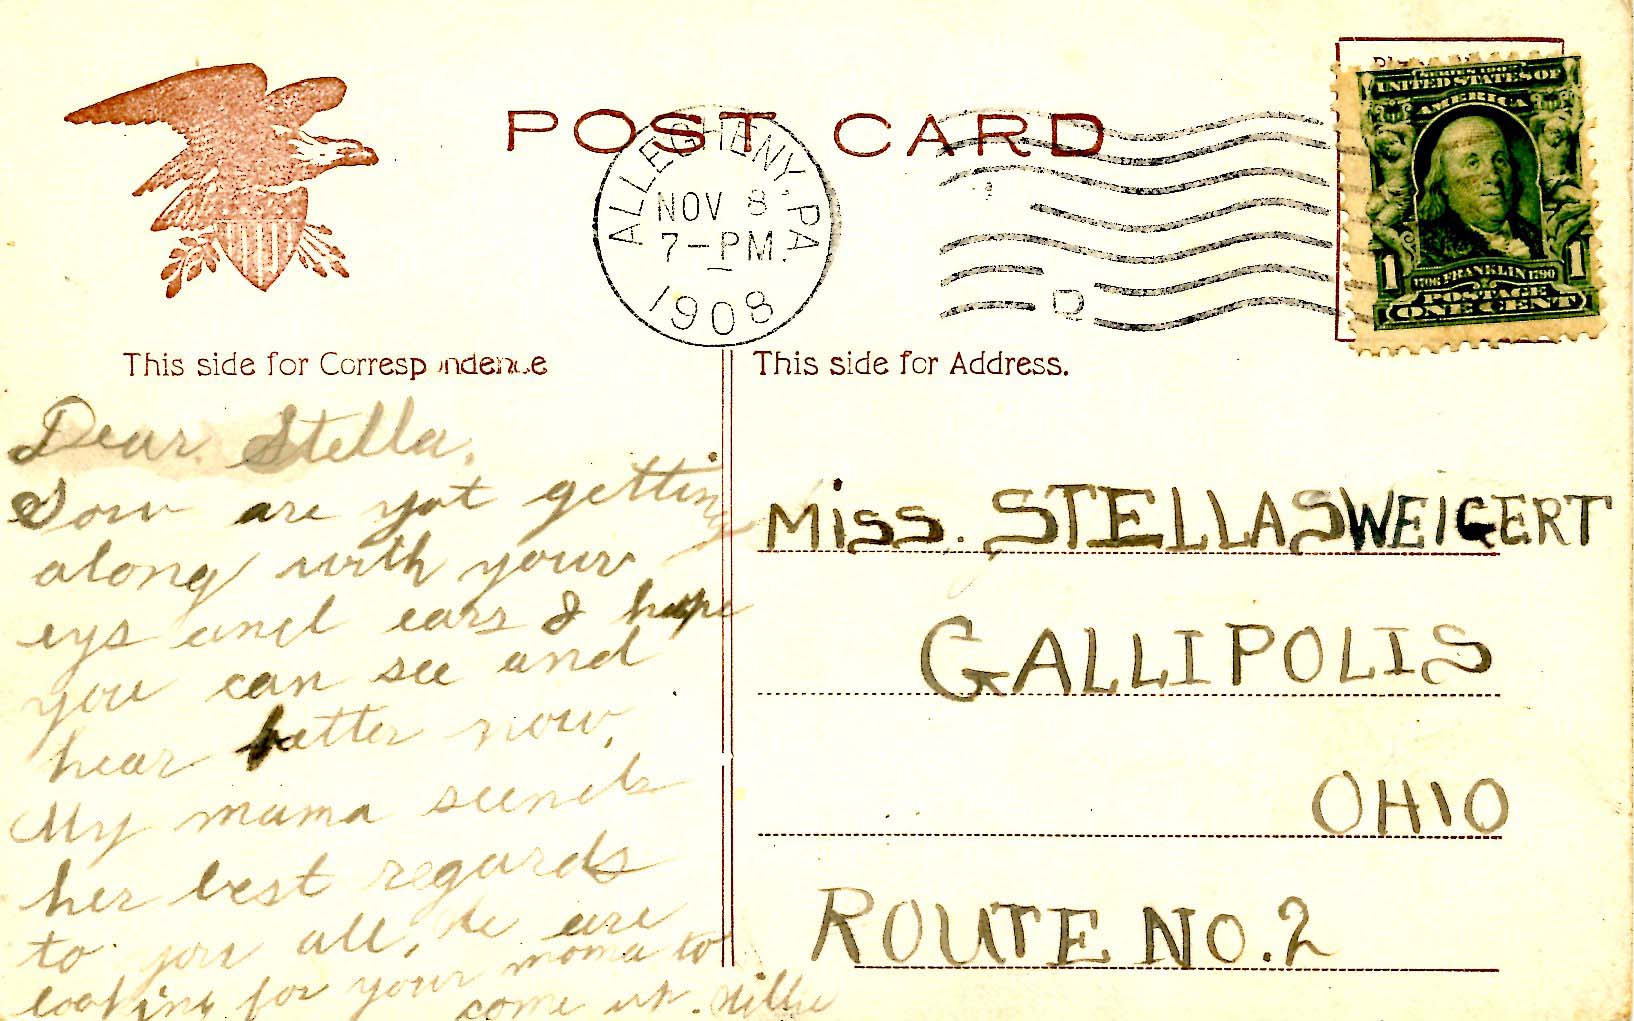 POST CARD
ALLEGHENY, PA.
NOV 8
7-PM
1908
D
SERIES 1902
UNITED STATES OF
AMERICA
1 1
1706 FRANKLIN 1790
POSTAGE
ONE CENT
This side for Correspondence
This side for Address.
Dear Stella,
are yot getting
along with your
eys and ears I hope
you can see and
hear better now.
My mama seends
her best regards
to you all, We are
looking for your moma to
come up.
MISS. STELLA SWEIGERT
GALLIPOLIS
OHIO
ROUTE NO. 2